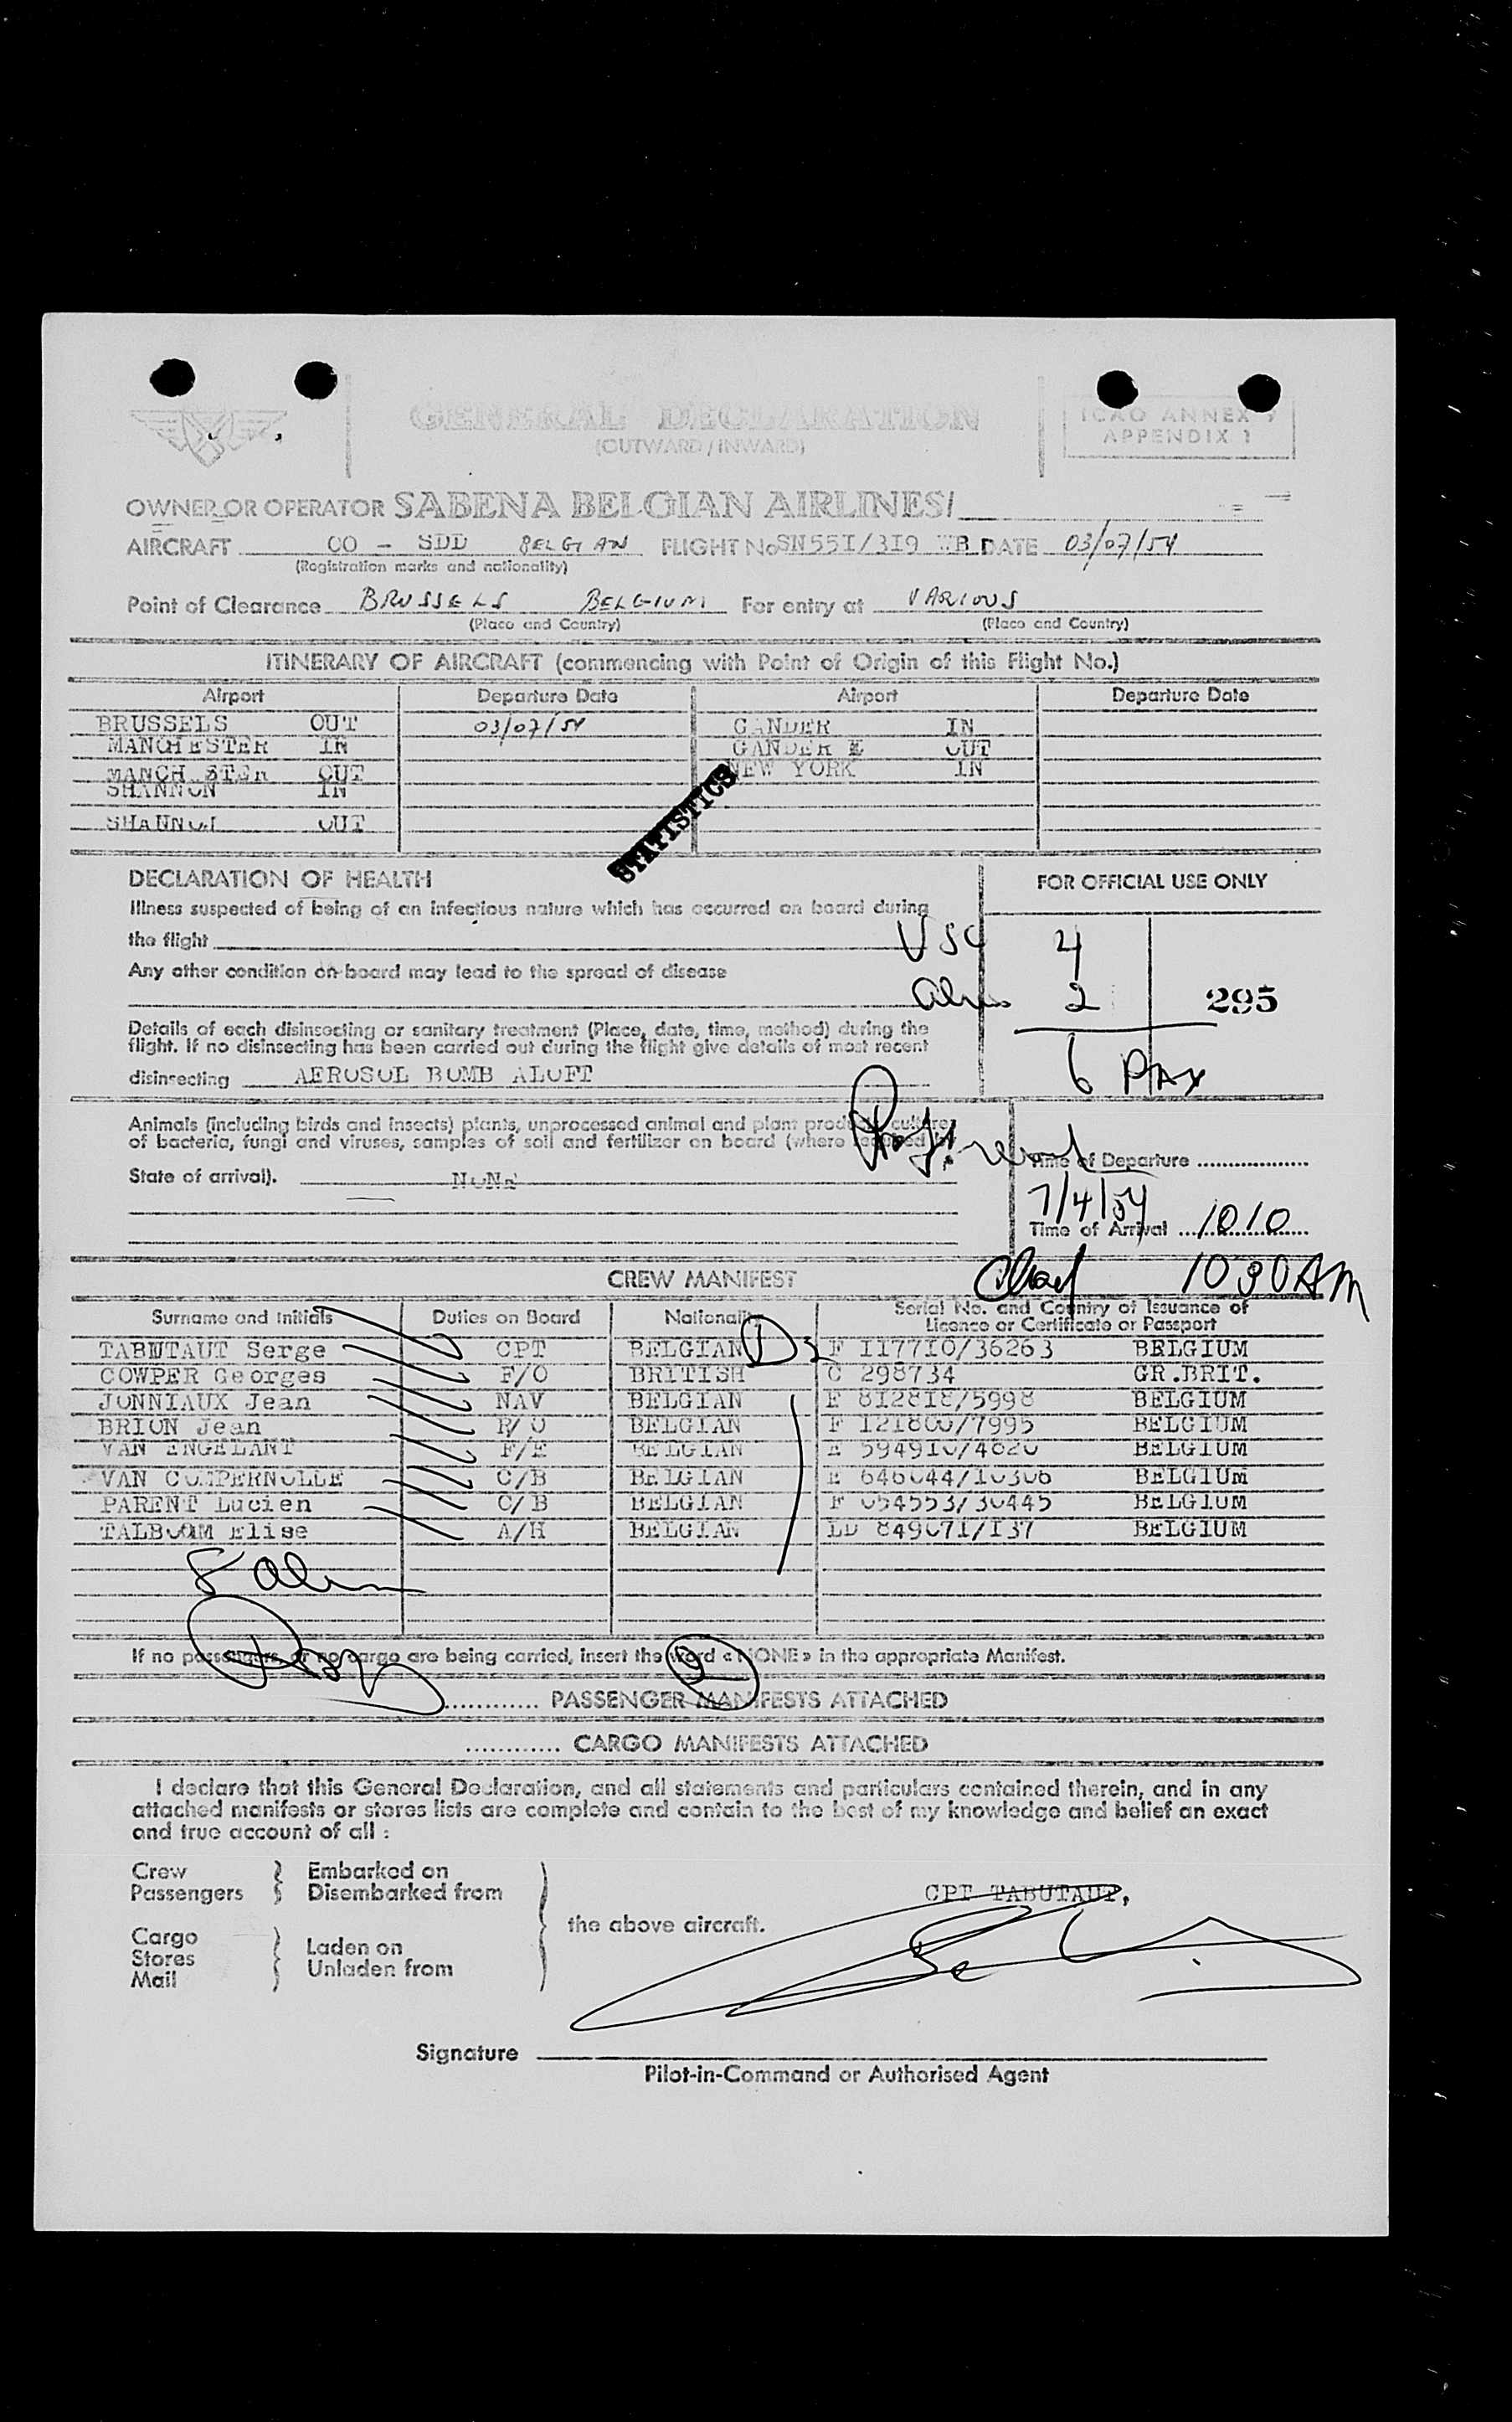 GENERAL DECLARATION
(OUTWARD / INWARD)
ICAO ANNEX 9
APPENDIX 1
OWNER OR OPERATOR SABENA BELGIAN AIRLINES/
AIRCRAFT OO - SDD BELGIAN FLIGHT No SN55I/3I9 WB DATE 03/07/54
(Registration marks and nationality)
Point of Clearance BRUSSELS BELGIUM For entry at VARIOUS
(Place and Country) (Place and Country)
ITINERARY OF AIRCRAFT (commencing with Point of Origin of this Flight No.)
Airport Departure Date Airport Departure Date
BRUSSELS OUT 03/07/54 GANDER IN
MANCHESTER IN GANDER E OUT
MANCH STER OUT NEW YORK IN
SHANNON IN
SHANNON OUT
STATISTICS
DECLARATION OF HEALTH FOR OFFICIAL USE ONLY
Illness suspected of being of an infectious nature which has occurred on board during
the flight USC 4
Any other condition on board may lead to the spread of disease
2 295
Details of each disinsecting or sanitary treatment (Place, date, time, method) during the
flight. If no disinsecting has been carried out during the flight give details of most recent
6 PAX
disinsecting AEROSOL BOMB ALOFT
Animals (including birds and insects) plants, unprocessed animal and plant products, cultures
of bacteria, fungi and viruses, samples of soil and fertilizer on board (where required by
State of arrival). NONE
Time of Departure
7/4/54
Time of Arrival 1010
1030 AM
CREW MANIFEST
Surname and Initials Duties on Board Nationality Serial No. and Country of Issuance of
Licence or Certificate or Passport
TABUTAUT Serge CPT BELGIAN F II77I0/36263 BELGIUM
COWPER Georges F/O BRITISH C 298734 GR.BRIT.
JONNIAUX Jean NAV BELGIAN E 8I28I8/5998 BELGIUM
BRION Jean R/O BELGIAN F I2I800/7995 BELGIUM
VAN ENGELANT F/E BELGIAN E 5949I0/4820 BELGIUM
VAN COMPERNOLLE C/B BELGIAN E 646044/I0306 BELGIUM
PARENT Lucien C/B BELGIAN F 054553/30445 BELGIUM
TALBOOM Elise A/H BELGIAN LD 84907I/I37 BELGIUM
8
If no passengers, or no cargo are being carried, insert the word « NONE » in the appropriate Manifest.
PASSENGER MANIFESTS ATTACHED
CARGO MANIFESTS ATTACHED
I declare that this General Declaration, and all statements and particulars contained therein, and in any
attached manifests or stores lists are complete and contain to the best of my knowledge and belief an exact
and true account of all :
Crew Embarked on
Passengers Disembarked from
CPT TABUTAUT,
the above aircraft.
Cargo
Stores Laden on
Mail Unladen from
Signature
Pilot-in-Command or Authorised Agent